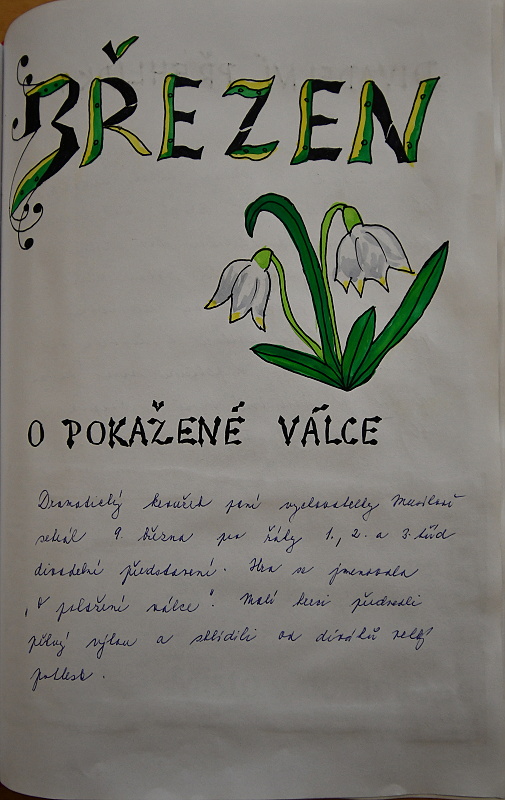 BŘEZEN
O POKAŽENÉ VÁLCE
Dramatický kroužek paní vychovatelky Musilové
sehrál 9. března pro žáky 1., 2. a 3. tříd
divadelní představení. Hra se jmenovala
"O pokažené válce". Malí herci předvedli
pěkný výkon a sklidili od diváků velký
potlesk.